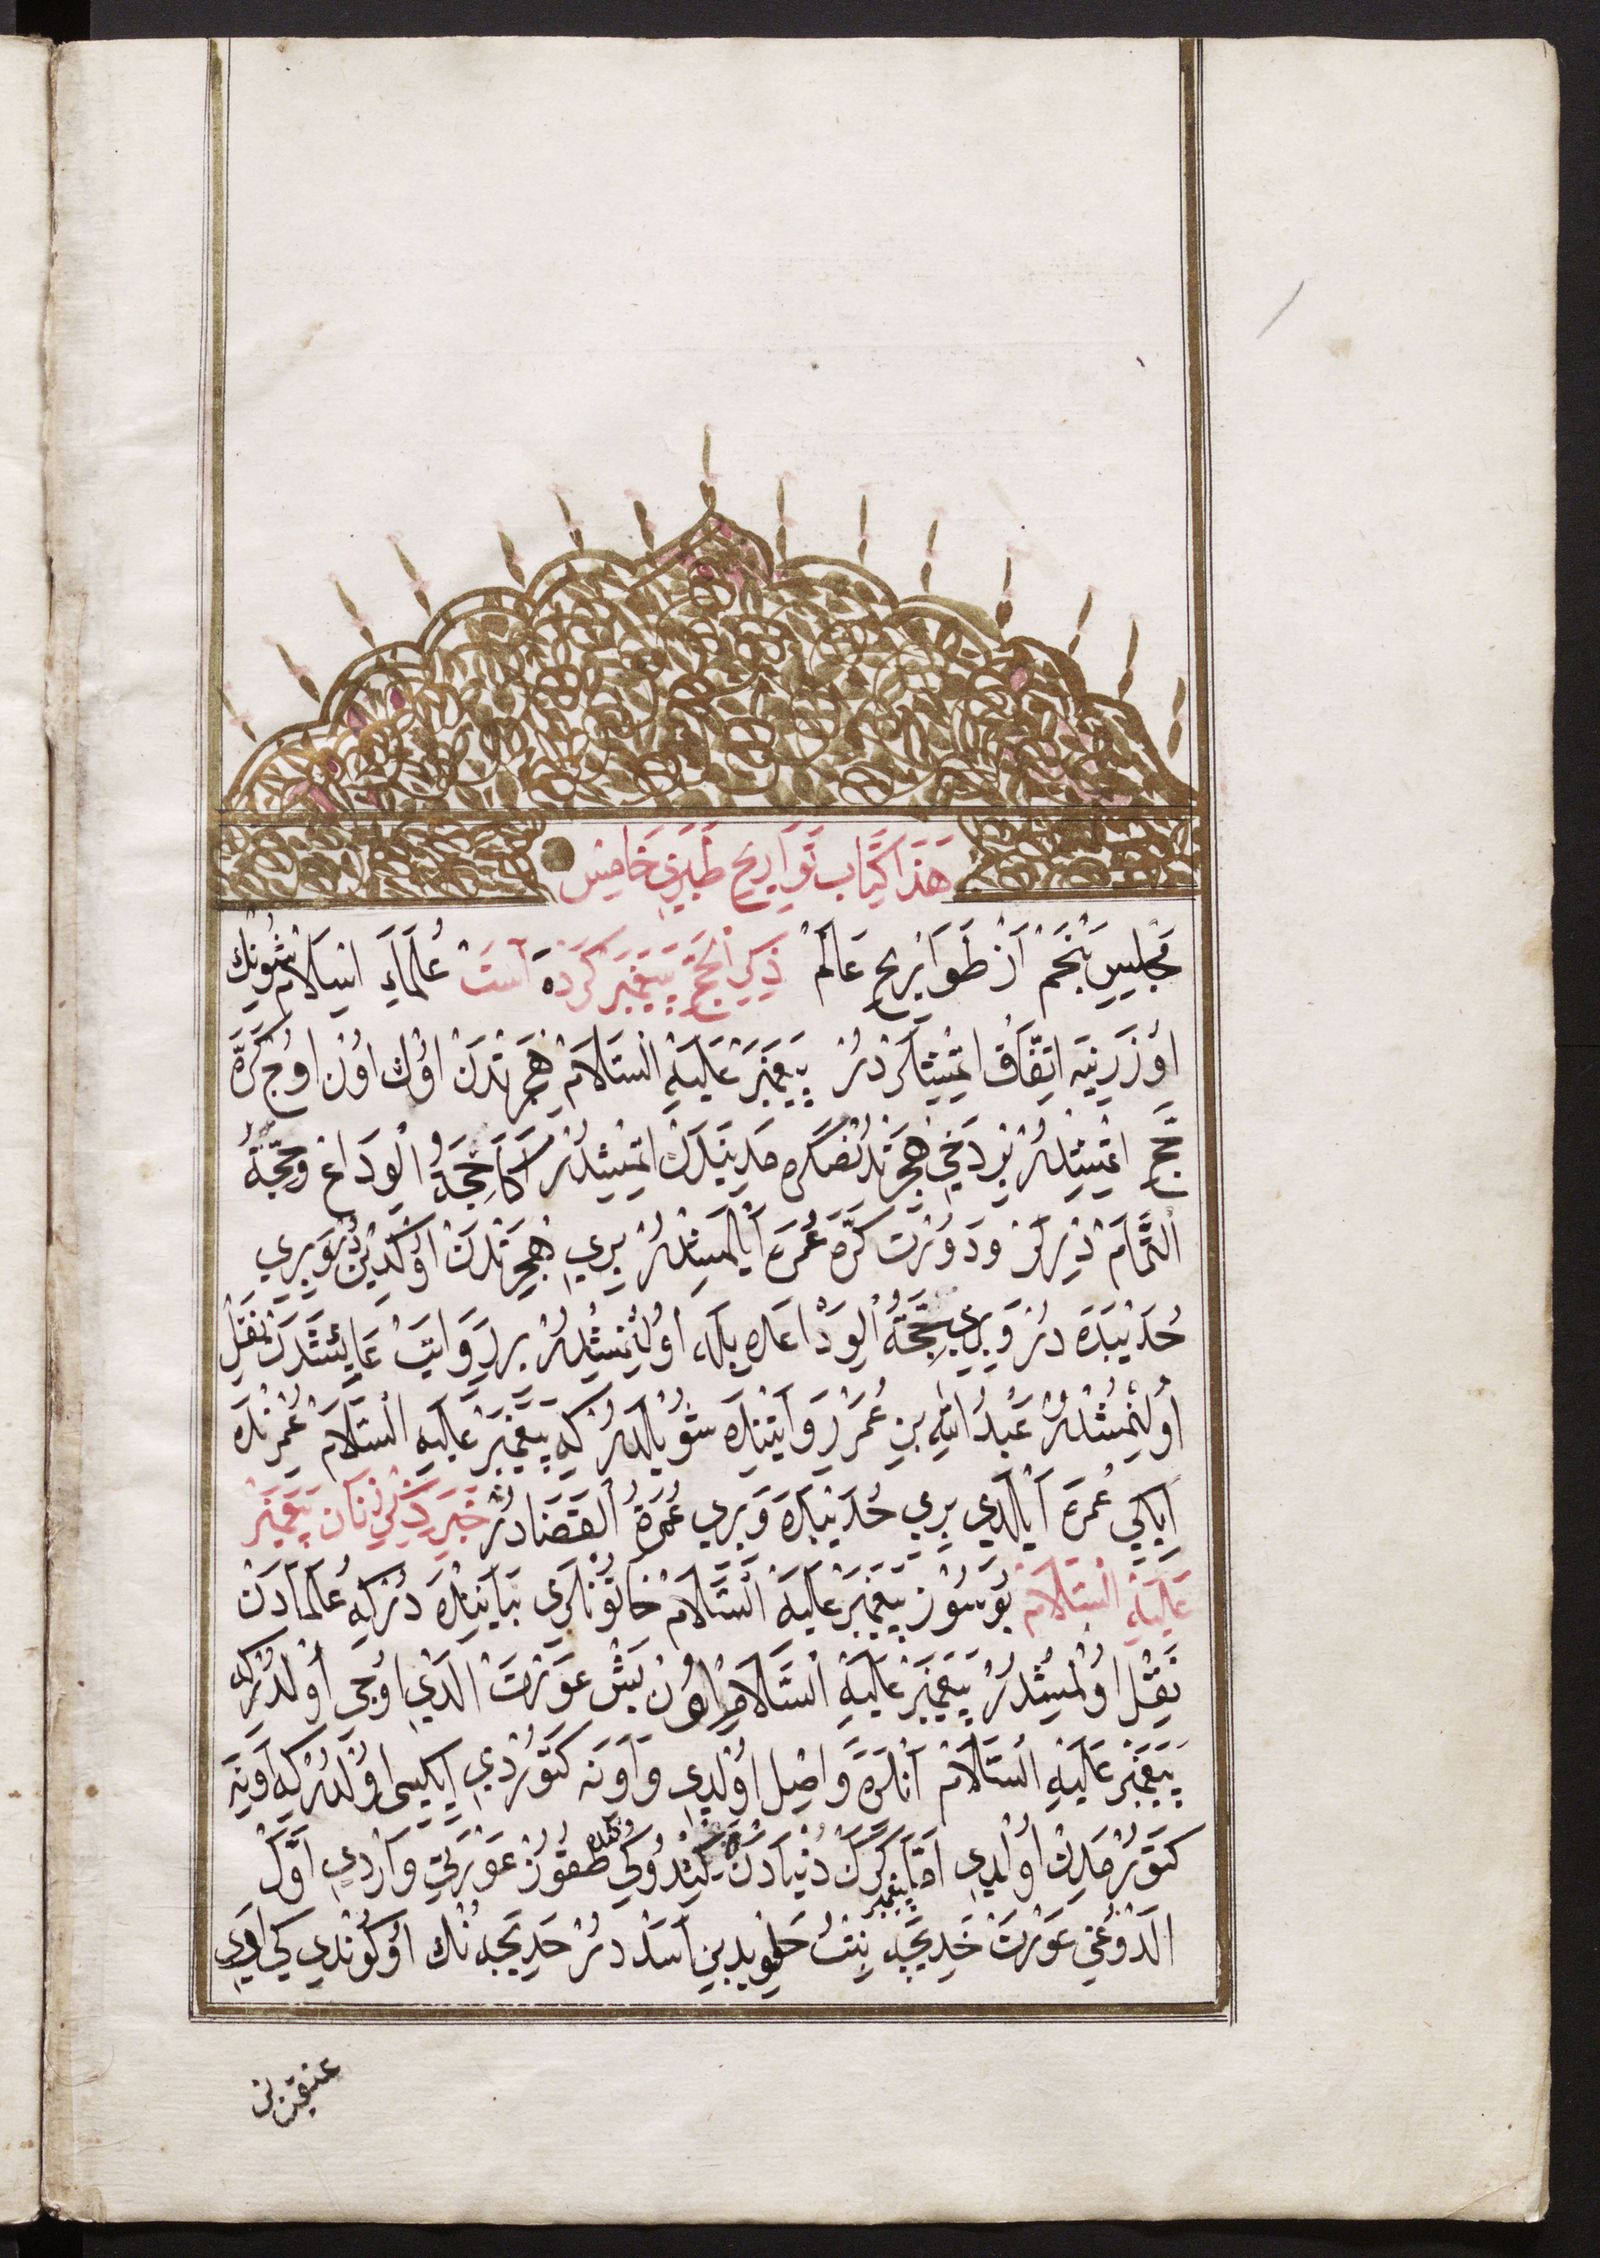 هَذَا كِتَاب تَوَارِيخ طَبَرِيْ خَامِيس
مَجْلِيسِ پَنْجَمْ اَزْ طَوَايْرِيحِ عَالَمْ ذِكِرِ الْحَجِّ پَيَغَمْبَرْ كَرْدَهَ آسَتْ عُلَمَاءِ اِسِلَامْ شُونِكْ
اُوزَرِنِيَه اتِفَّاقْ اتْمِشْلَرْدُرْ پَيَغَمْبَرْ عَلَيْهِ السَّلَامْ هِجْرَتْدَنْ اوُّلْ اوُنْ اوُچْ كَرَّهْ
حَجّ اتْمِشِدُرْ بِرْ دَخِي هِجْرَتْدَنْصَكَره مَدِينَدَنْ اتْمِشْدُرْ آكَا حَجَّةُ الْوِدَاعْ وَحَجَّةُ
التَّمَامْ دِرْلَرْ وَدَوُرْت كَرَّه عُمْرَه اَيْلَمِشْدُرْ بِرِي هِجْرَتْدَنْ اوُّلْدِينْ دُرْ وَبِرِي
حُدَيْبَدَه دُرْ وَبِرِي حَجَّةُ الْوِدَاعَده بِلَه اوُلْنْمِشْدُرْ بِر رِوَايَتْ عَايِشَدَنْ نَقْلْ
اُولِنْمُشْدُرْ عَبْدُ اللّٰهِ بِنِ عُمَرْ رِوَايَتِنْدَه شُويْلَدُرْ كِه پَيَغَمْبَرْ عَلَيْهِ السَّلَامْ عُمْرِنْدَه
اِيكِي عُمْرَه اَيْلَدِي بِرِي حُدَيْبَدَه وَبِرِي عُمْرَةُ الْقَضَادُرْ خَبَرِ ذِكْرِي زَنَانِ پَيَغَمْبَرْ
عَلَيْهِ السَّلَامْ بُوسُوزْ پَيَغَمْبَرْ عَلَيْهِ السَّلَامْ خَاتُونْلَرِي بَيَانِنْدَه دُرْكِه عُلَمَادَنْ
نَقِلْ اوُلْمِشْدُرْ پَيَغَمْبَرْ عَلَيْهِ السَّلَامْ اوُنْ بَشْ عَوْرَتْ الْدِي اوُچِي اوُلْدُرْكِه
پَيَغَمْبَرْ عَلَيْهِ السَّلَامْ اَنْلَرَه وَاصِلْ اوُلْدِي وَاَوَنَه كَتُورْدِي اِيكِيسِي اوُلْدُرْ كِه اَوِنَه
كَتُورْمَدِنْ اوُلْدِي اَمَّا پيغمبر كَرَكْ دُنْيَادَنْ كِتْدُوكِي طُقُوزْ عَوْرَتِي وَارْدِي اَوَّلْ
اَلْدُوغِي عَوْرَتْ خَدِيجَه بِنْتُ خُوَيْلِدْ بِنِ اَسَدْ دُرْ خَدِيجَه نُكْ اوُّلْكُونْدِي كِي اَدِي
عتيق بن